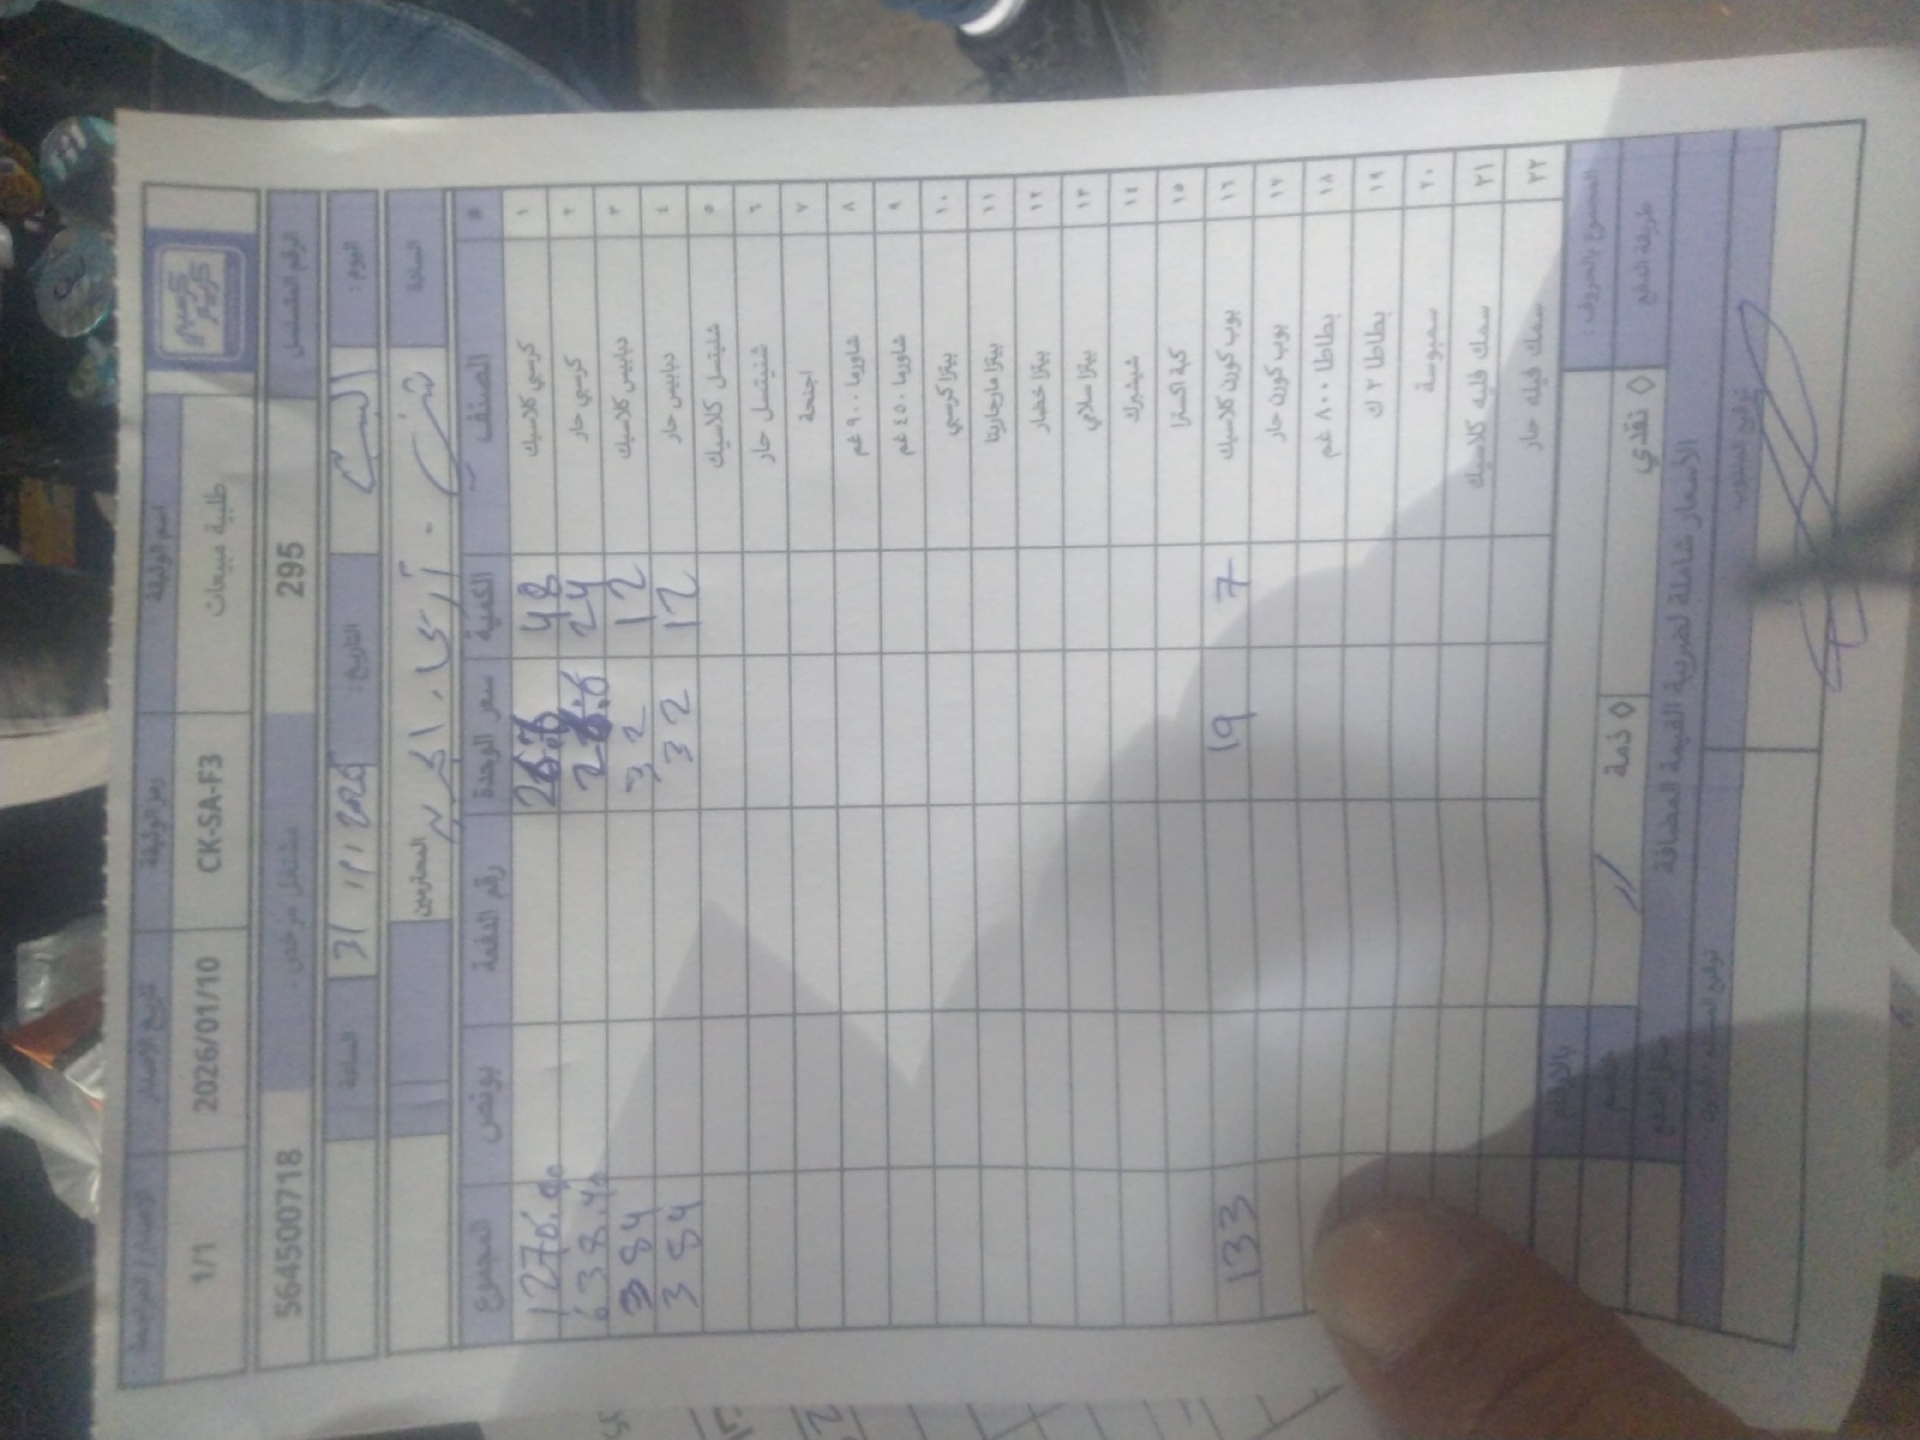 كرسبي كريسبر
اسم الوثيقة رمز الوثيقة تاريخ الإصدار الإصدار / المراجعة
طلبية مبيعات CK-SA-F3 2026/01/10 1/1
الرقم المتسلسل 295 مشتغل مرخص: 564500718
اليوم: السبت التاريخ: 31/1/2026 الساعة
السادة المحترمين
# الصنف الكمية سعر الوحدة رقم الدفعة بونص المجموع
١ كرسبي كلاسيك 48
٢ كرسبي حار 24 638.40
٣ دبابيس كلاسيك 12 32 384
٤ دبابيس حار 12 32 384
٥ شنيتسل كلاسيك
٦ شنيتسل حار
٧ اجنحة
٨ شاورما ٩٠٠ غم
٩ شاورما ٤٥٠ غم
١٠ بيتزا كرسبي
١١ بيتزا مارجاريتا
١٢ بيتزا خضار
١٣ بيتزا سلامي
١٤ شيشبرك
١٥ كبة اكسترا
١٦ بوب كورن كلاسيك 7 19 133
١٧ بوب كورن حار
١٨ بطاطا ٨٠٠ غم
١٩ بطاطا ٢ ك
٢٠ سمبوسة
٢١ سمك فليه كلاسيك
٢٢ سمك فيله حار
المجموع بالحروف: بالارقام
طريقة الدفع ◊ نقدي ◊ ذمة
الأسعار شاملة لضريبة القيمة المضافة
توقيع المندوب